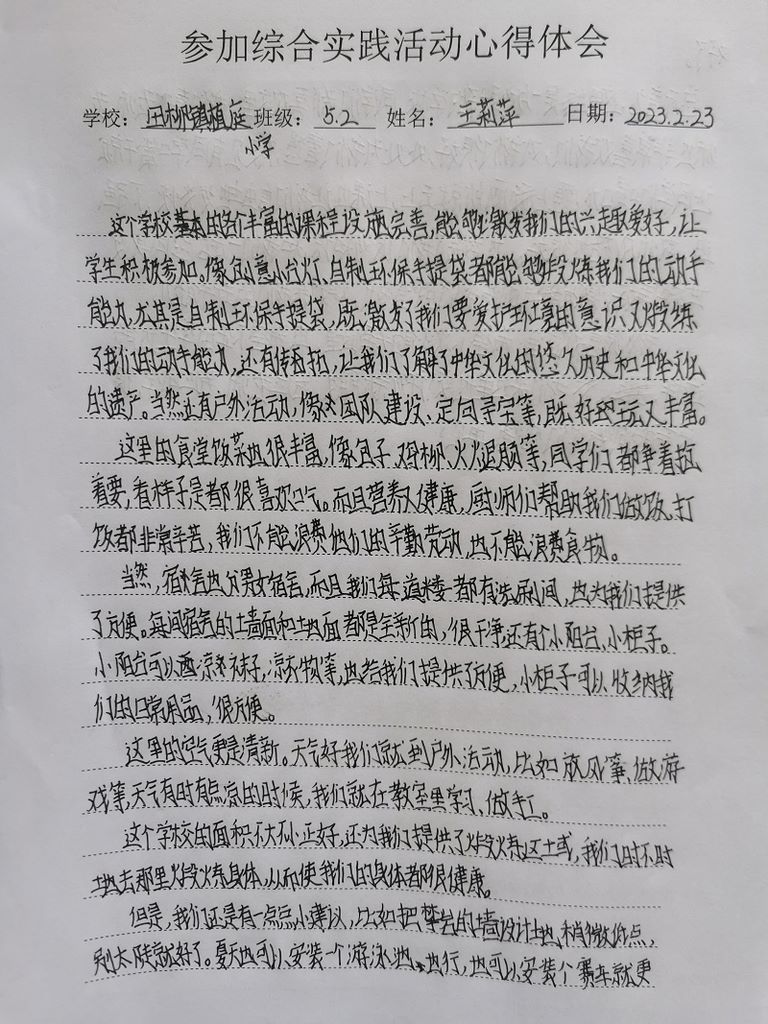 参加综合实践活动心得体会
学校：田柳镇植庭小学 班级：5.2 姓名：王莉萍 日期：2023.2.23
这个学校基本的各个丰富的课程设施完善，能够激发我们的兴趣爱好，让
学生积极参加。像创意小台灯，自制环保手提袋都能够锻炼我们的动手
能力，尤其是自制环保手提袋，既激发了我们要爱护环境的意识又锻练
了我们的动手能力，还有传统拓，让我们了解了中华文化的悠久历史和中华文化
的遗产。当然还有户外活动，像团队建设、定向寻宝等，既好玩又丰富。
这里的食堂饭菜也很丰富，像包子、鸡柳、火腿肠等，同学们都争着抢
着要，看样子是都很喜欢吃。而且营养又健康，厨师们帮助我们做饭，打
饭都非常辛苦，我们不能浪费他们的辛勤劳动，也不能浪费食物。
当然，宿舍也分男女宿舍，而且我们每道楼都有洗刷间，也为我们提供
了方便。每间宿舍的墙面和地面都是全新的，很干净还有个小阳台，小柜子。
小阳台可以晒凉袜子，凉衣物等，也给我们提供了方便，小柜子可以收纳我
们的日常用品，很方便。
这里的空气更是清新。天气好我们就到户外活动，比如放风筝，做游
戏等，天气有时有点凉的时候，我们就在教室里学习、做手工。
这个学校的面积不大不小正好，还为我们提供了锻炼区域，我们时不时
地去那里锻炼身体，从而使我们的身体都很健康。
但是，我们还是有一点点小建议，比如把攀岩的墙设计地稍微低点，
别太陡就好了。夏天也可以安装一个游泳池也行，也可以安装个赛车就更